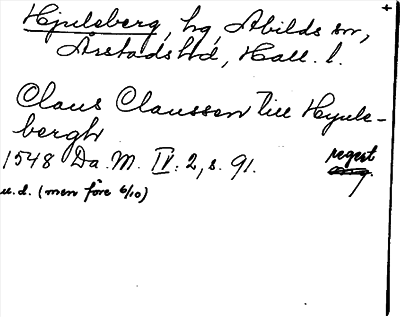 Hjulsberg, hg, Abilds sn,
Årstads hd, Hall. l.
Claus Clausson till Hyuls-
bergh
1548 Da. M. IV: 2, s. 91. regest
u. d. (men före 6/10)